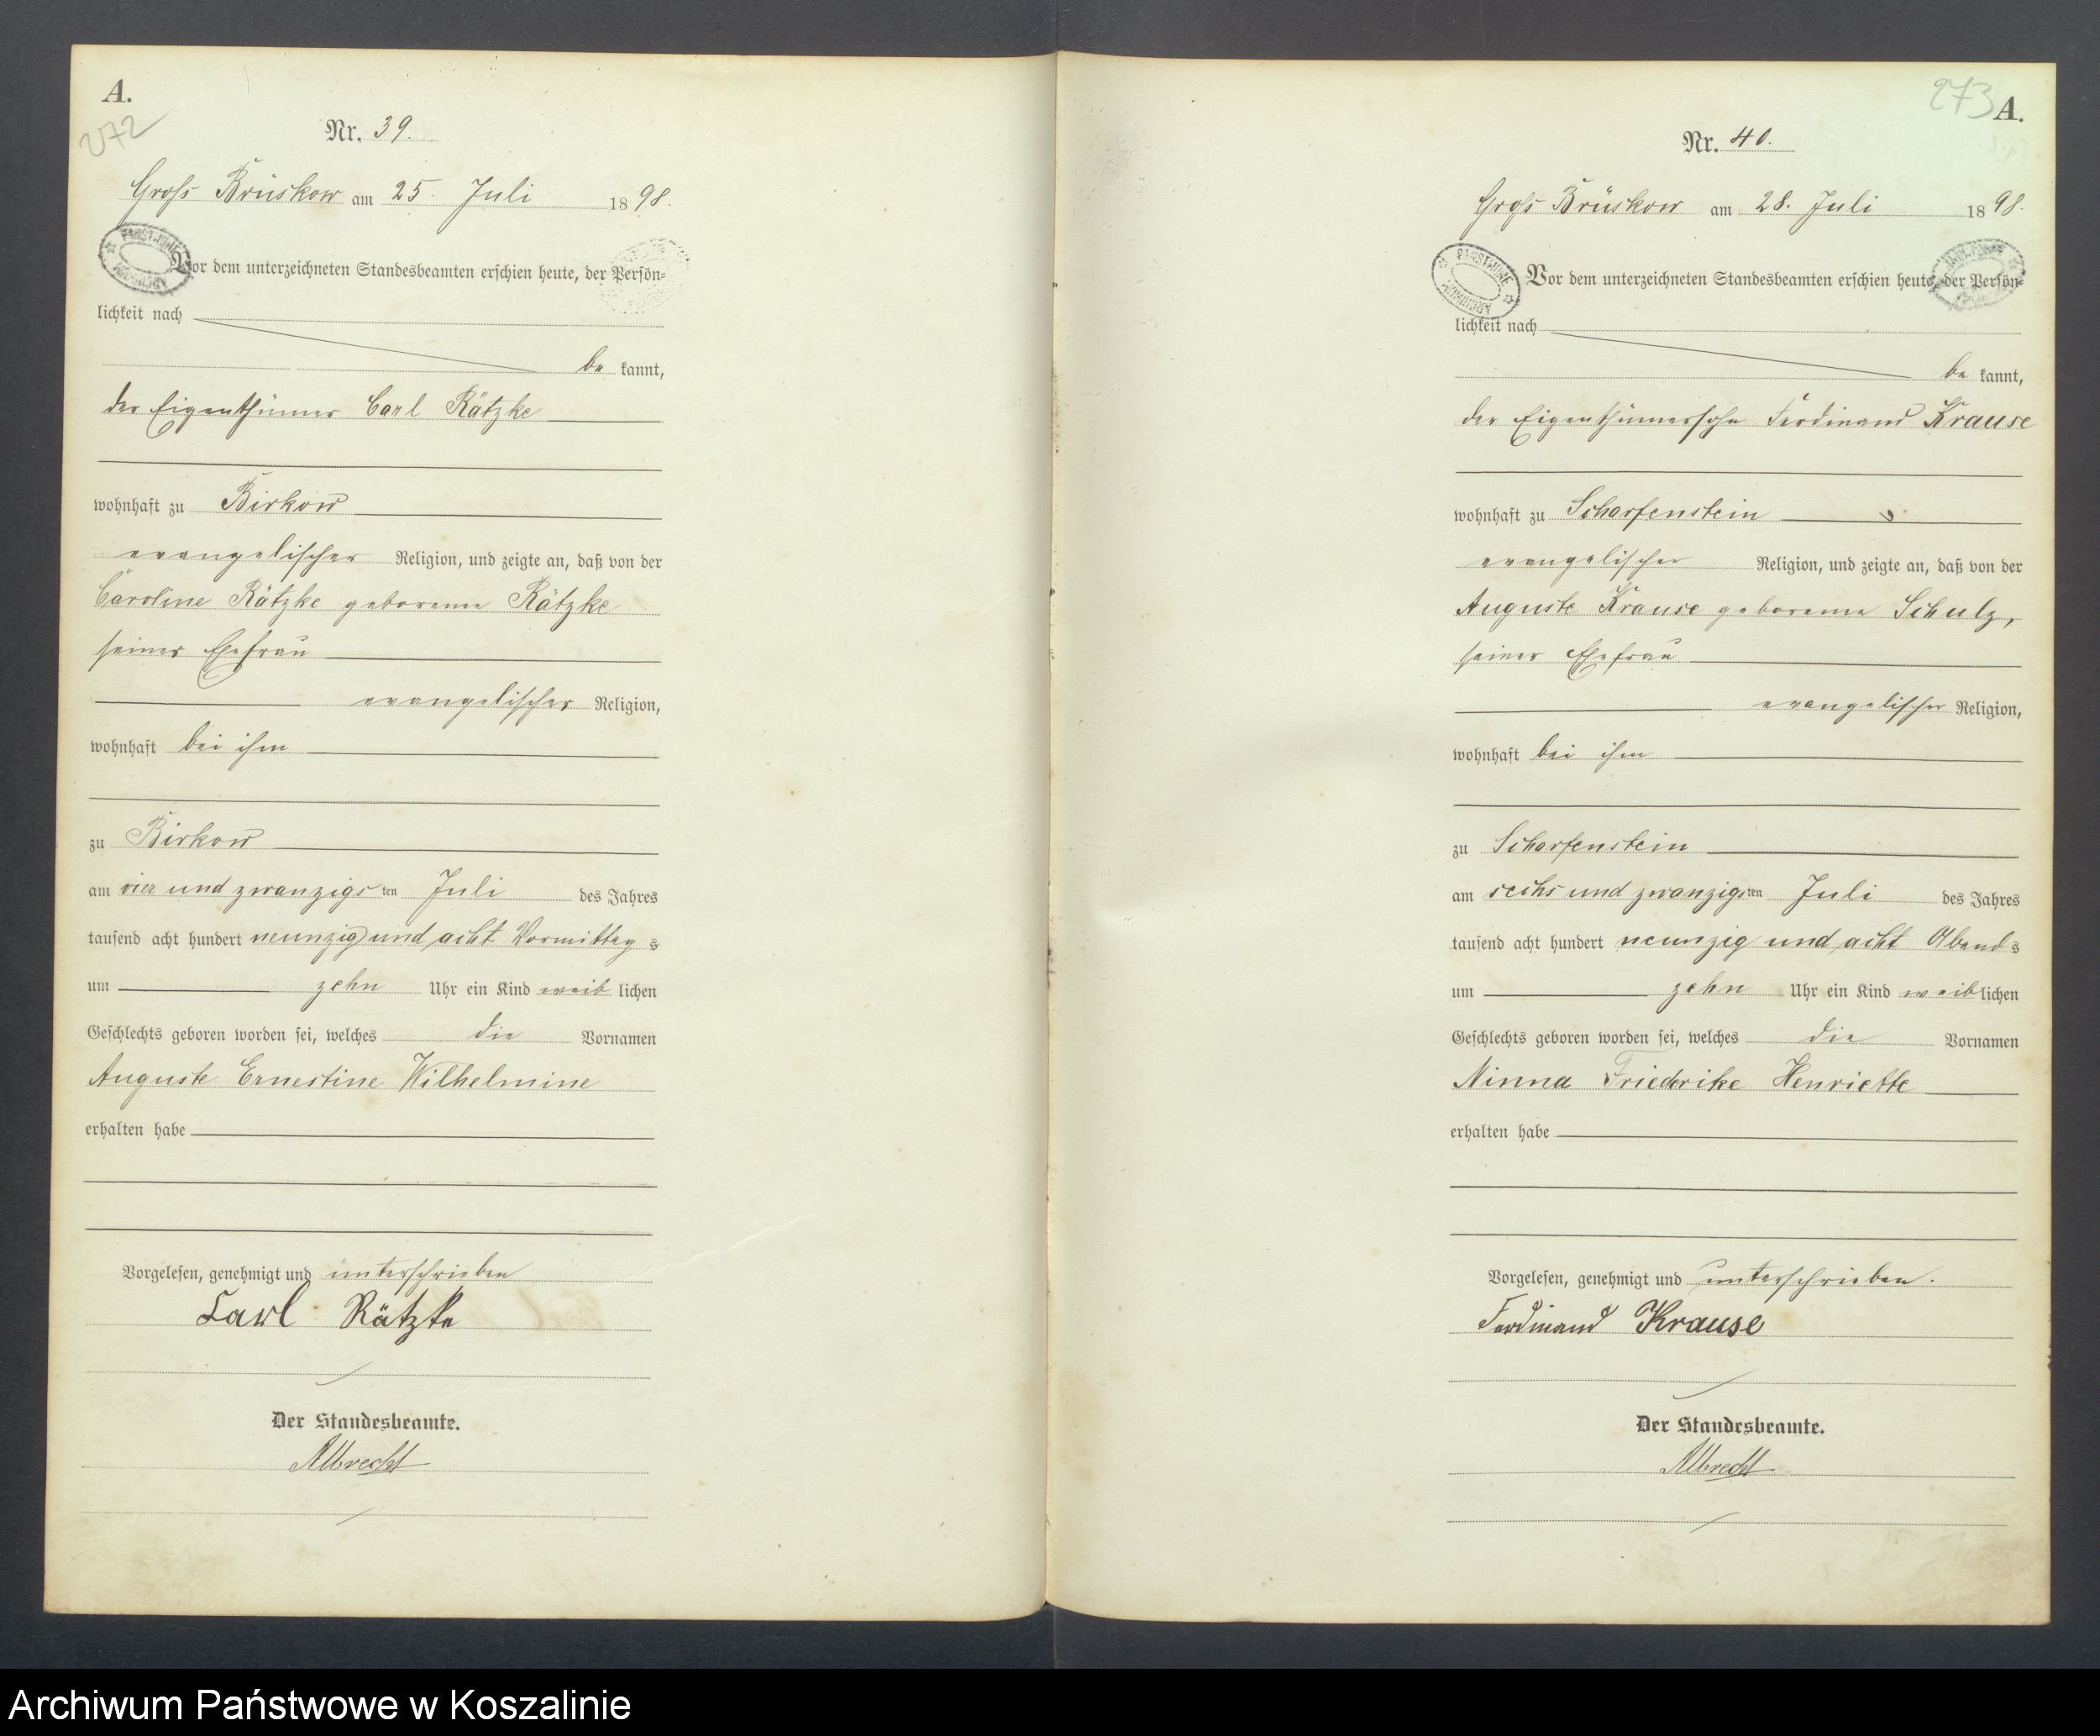 A.
272
Nr. 39.
Gross Brüskow am 25. Juli 1898.
Vor dem unterzeichneten Standesbeamten erschien heute, der Persön-
lichkeit nach
be kannt,
der Eigenthümer Carl Rätzke
wohnhaft zu Birkow
evangelischer Religion, und zeigte an, daß von der
Caroline Rätzke geborene Rätzke
seiner Ehefrau
evangelischer Religion,
wohnhaft bei ihm
zu Birkow
am vier und zwanzigsten Juli des Jahres
tausend acht hundert neunzig und acht Vormittags
um zehn Uhr ein Kind weiblichen
Geschlechts geboren worden sei, welches die Vornamen
Auguste Ernestine Wilhelmine
erhalten habe
Vorgelesen, genehmigt und unterschrieben
Carl Rätzke
Der Standesbeamte.
Albrecht
273 A.
Nr. 40.
Gross Brüskow am 28. Juli 1898.
Vor dem unterzeichneten Standesbeamten erschien heute, der Persön-
lichkeit nach
be kannt,
der Eigenthümersohn Ferdinand Krause
wohnhaft zu Scharfenstein
evangelischer Religion, und zeigte an, daß von der
Auguste Krause geborene Schulz,
seiner Ehefrau
evangelischer Religion,
wohnhaft bei ihm
zu Scharfenstein
am sechs und zwanzigsten Juli des Jahres
tausend acht hundert neunzig und acht Abends
um zehn Uhr ein Kind weiblichen
Geschlechts geboren worden sei, welches die Vornamen
Minna Friederike Henriette
erhalten habe
Vorgelesen, genehmigt und unterschrieben.
Ferdinand Krause
Der Standesbeamte.
Albrecht
Archiwum Państwowe w Koszalinie